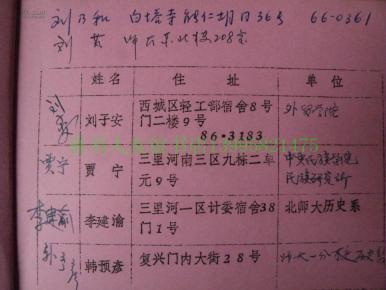 刘乃和 白塔寺能仁胡同36号 66-0361
刘黄 师大东北楼208室
姓名 住址 单位
刘子安
西城区轻工部宿舍8号
门二楼9号
86·3183
外贸学院
贾宁
贾宁
三里河南三区九栋二单
元9号
中央民族学院
民族研究所
李建渝
李建渝
三里河一区计委宿舍38
门1号
北师大历史系
韩预彦
复兴门内大街28号
师大一分校